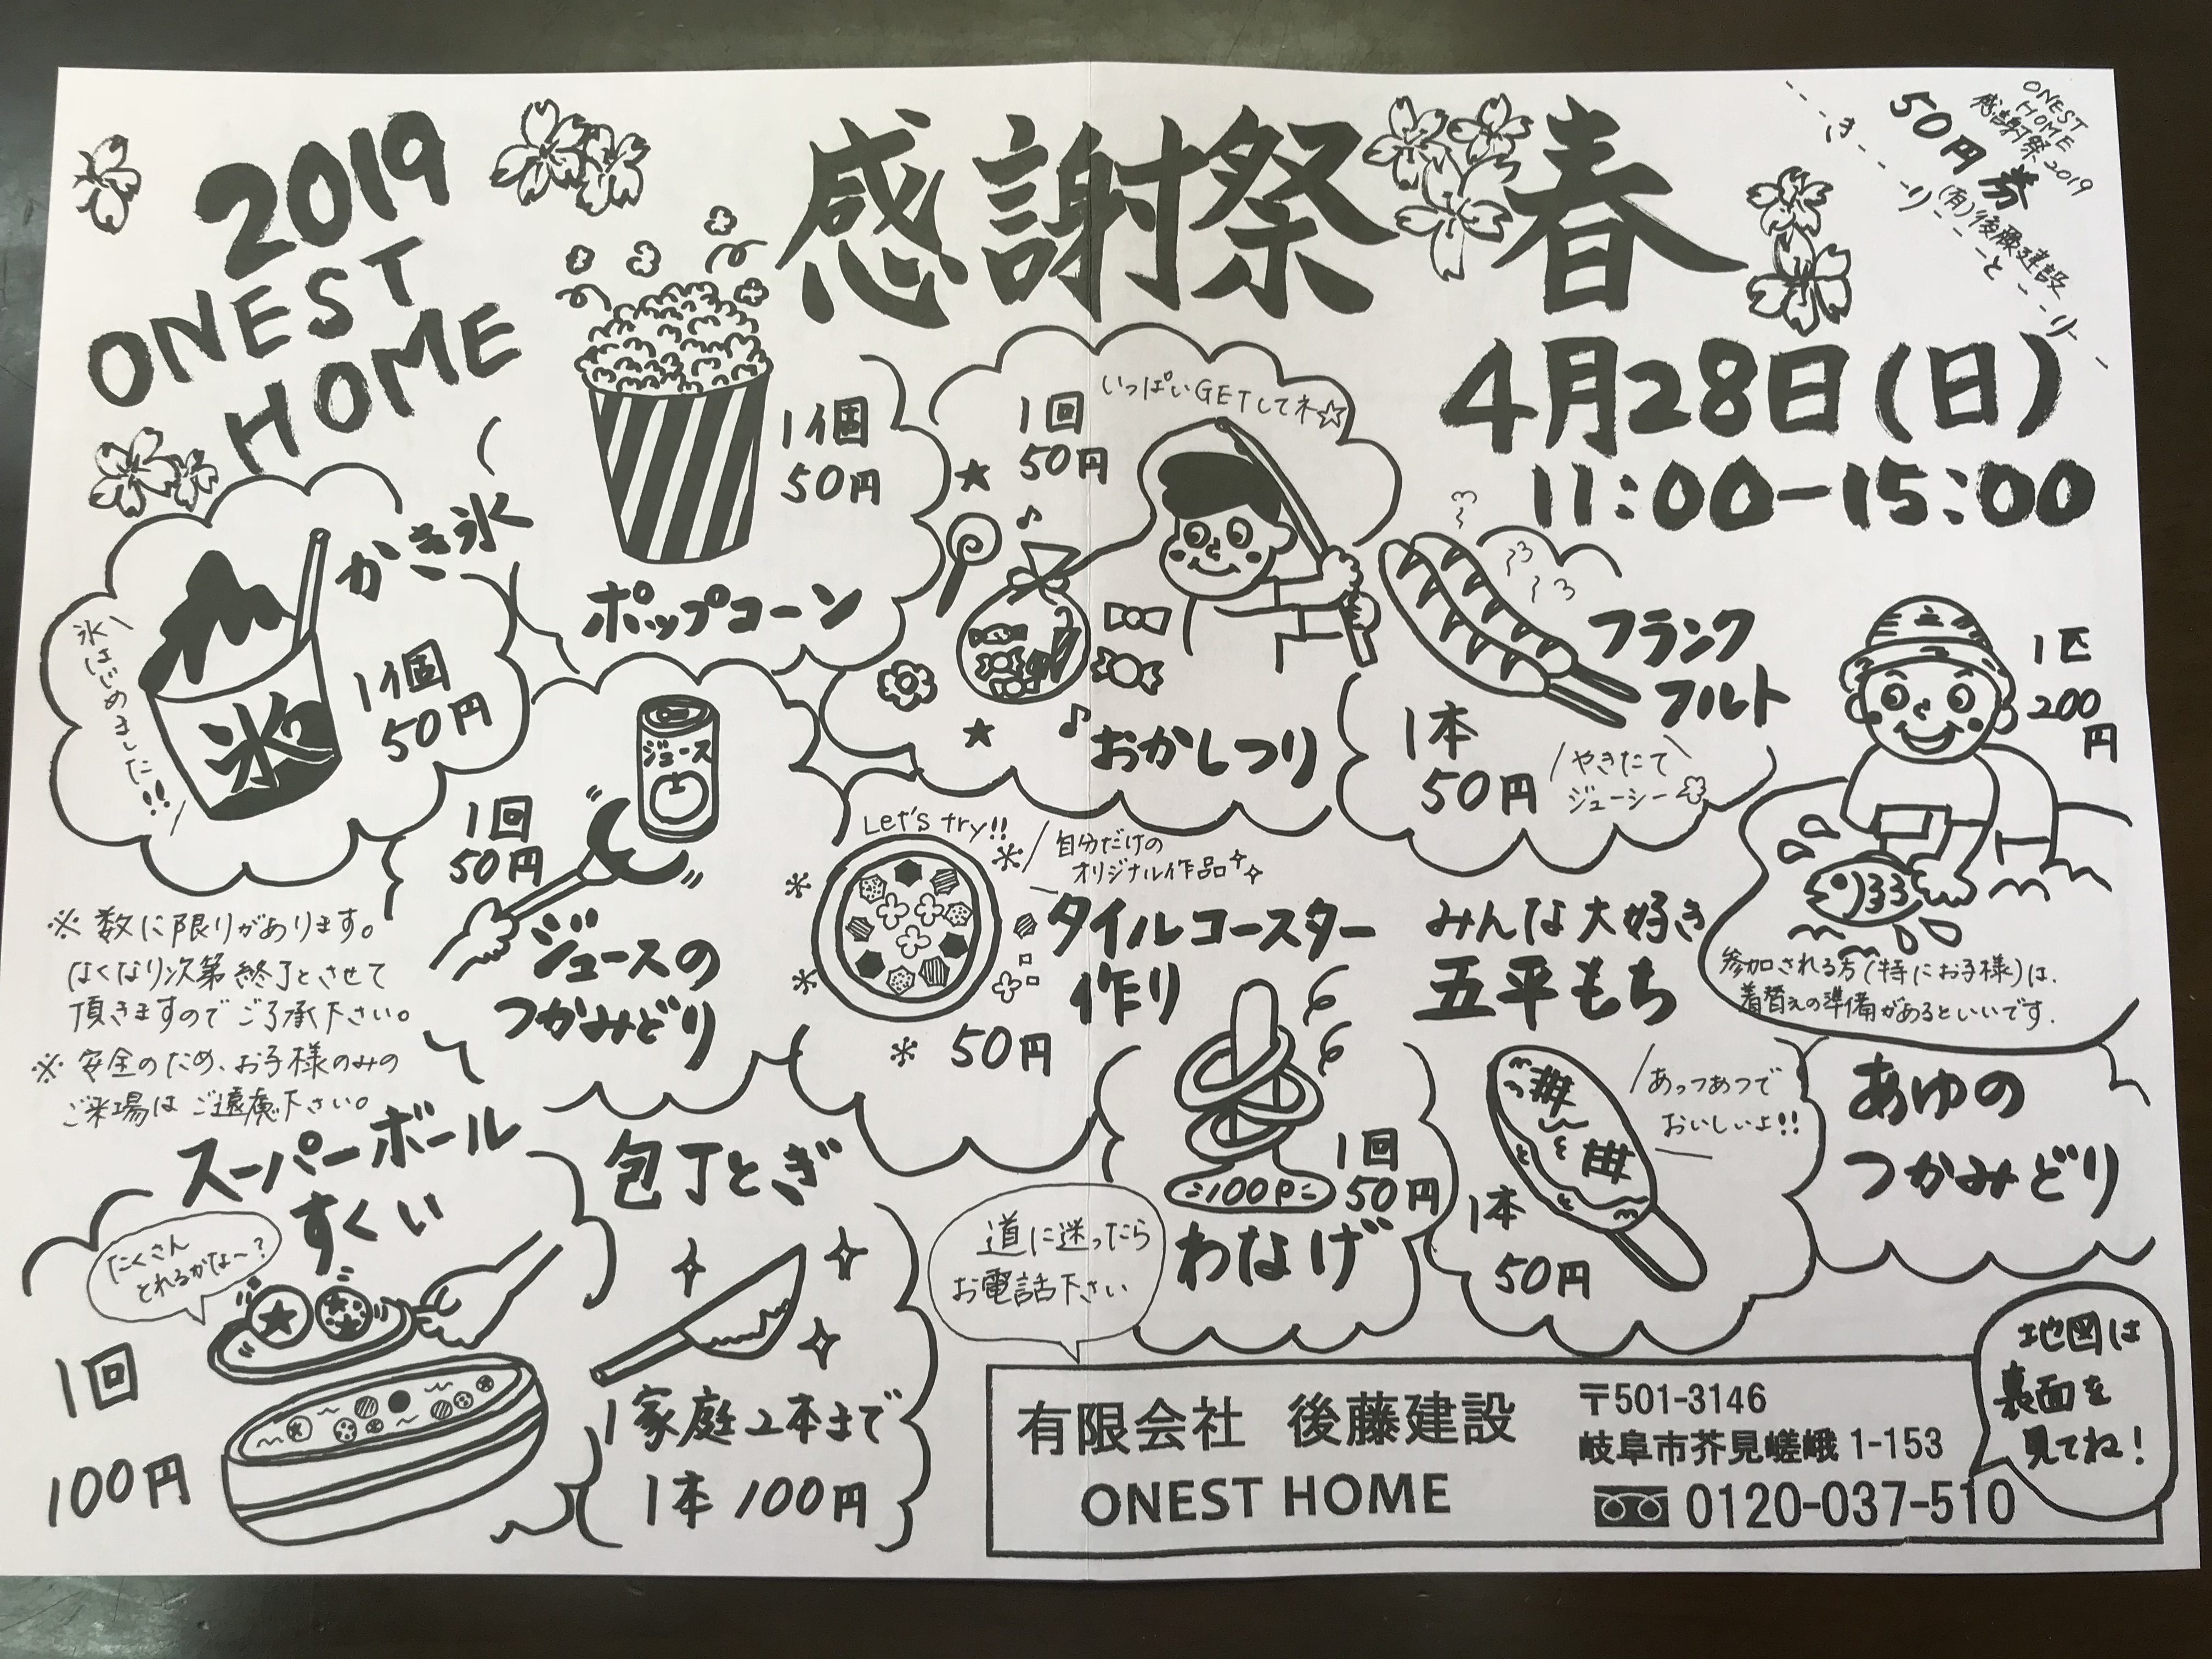 2019
ONEST
HOME
感謝祭 春
ONEST
HOME
感謝祭2019
50円券
(有)後藤建設
きりとり
4月28日(日)
11:00-15:00
かき氷
氷はじめました!!
氷
1個
50円
1個
50円
ポップコーン
1回
50円
いっぱいGETしてネ☆
おかしつり
フランク
フルト
1本
50円
やきたて
ジューシー
1匹
200
円
参加される方(特にお子様)は、
着替えの準備があるといいです.
あゆの
つかみどり
ジュース
1回
50円
ジュースの
つかみどり
Let's try!!
自分だけの
オリジナル作品
タイルコースター
作り
50円
みんな大好き
五平もち
あっつあつで
おいしいよ!!
1本
50円
※数に限りがあります。
なくなり次第終了とさせて
頂きますのでご了承下さい。
※安全のため、お子様のみの
ご来場はご遠慮下さい。
スーパーボール
すくい
たくさん
とれるかな〜?
1回
100円
包丁とぎ
1家庭2本まで
1本100円
100P
1回
50円
わなげ
道に迷ったら
お電話下さい
有限会社 後藤建設
ONEST HOME
〒501-3146
岐阜市芥見嵯峨1-153
0120-037-510
地図は
裏面を
見てね!